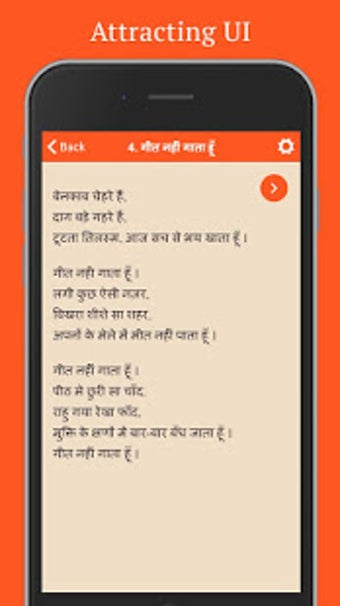 Attracting UI
Back
4. गीत नहीं गाता हूँ
बेनकाब चेहरे हैं,
दाग बड़े गहरे हैं,
टूटता तिलस्म, आज सच से भय खाता हूँ ।
गीत नही गाता हूँ ।
लगी कुछ ऐसी नज़र,
बिखरा शीशे सा शहर,
अपनों के मेले में मीत नहीं पाता हूँ ।
गीत नहीं गाता हूँ ।
पीठ मे छुरी सा चाँद,
राहु गया रेखा फाँद,
मुक्ति के क्षणों में बार-बार बँध जाता हूँ ।
गीत नहीं गाता हूँ ।